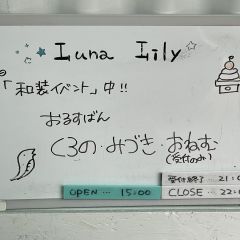 Luna Lily
「和装イベント」中!!
おるすばん
くろの・みづき・おねむ
(受付のみ)
受付終了 21:
OPEN … 15:00
CLOSE … 22: